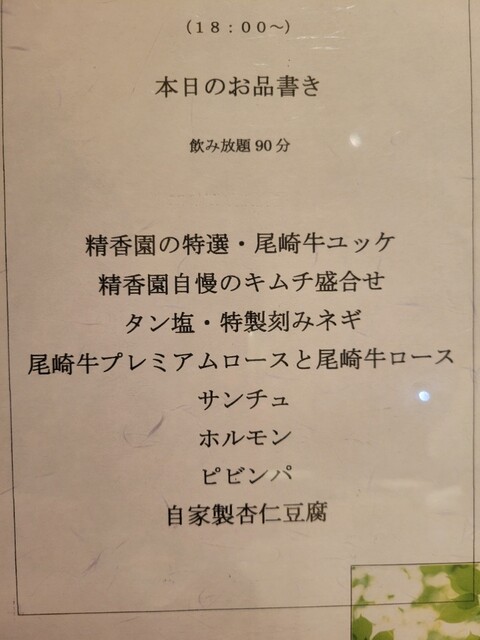 （18：00～）
本日のお品書き
飲み放題90分
精香園の特選・尾崎牛ユッケ
精香園自慢のキムチ盛合せ
タン塩・特製刻みネギ
尾崎牛プレミアムロースと尾崎牛ロース
サンチュ
ホルモン
ピビンパ
自家製杏仁豆腐